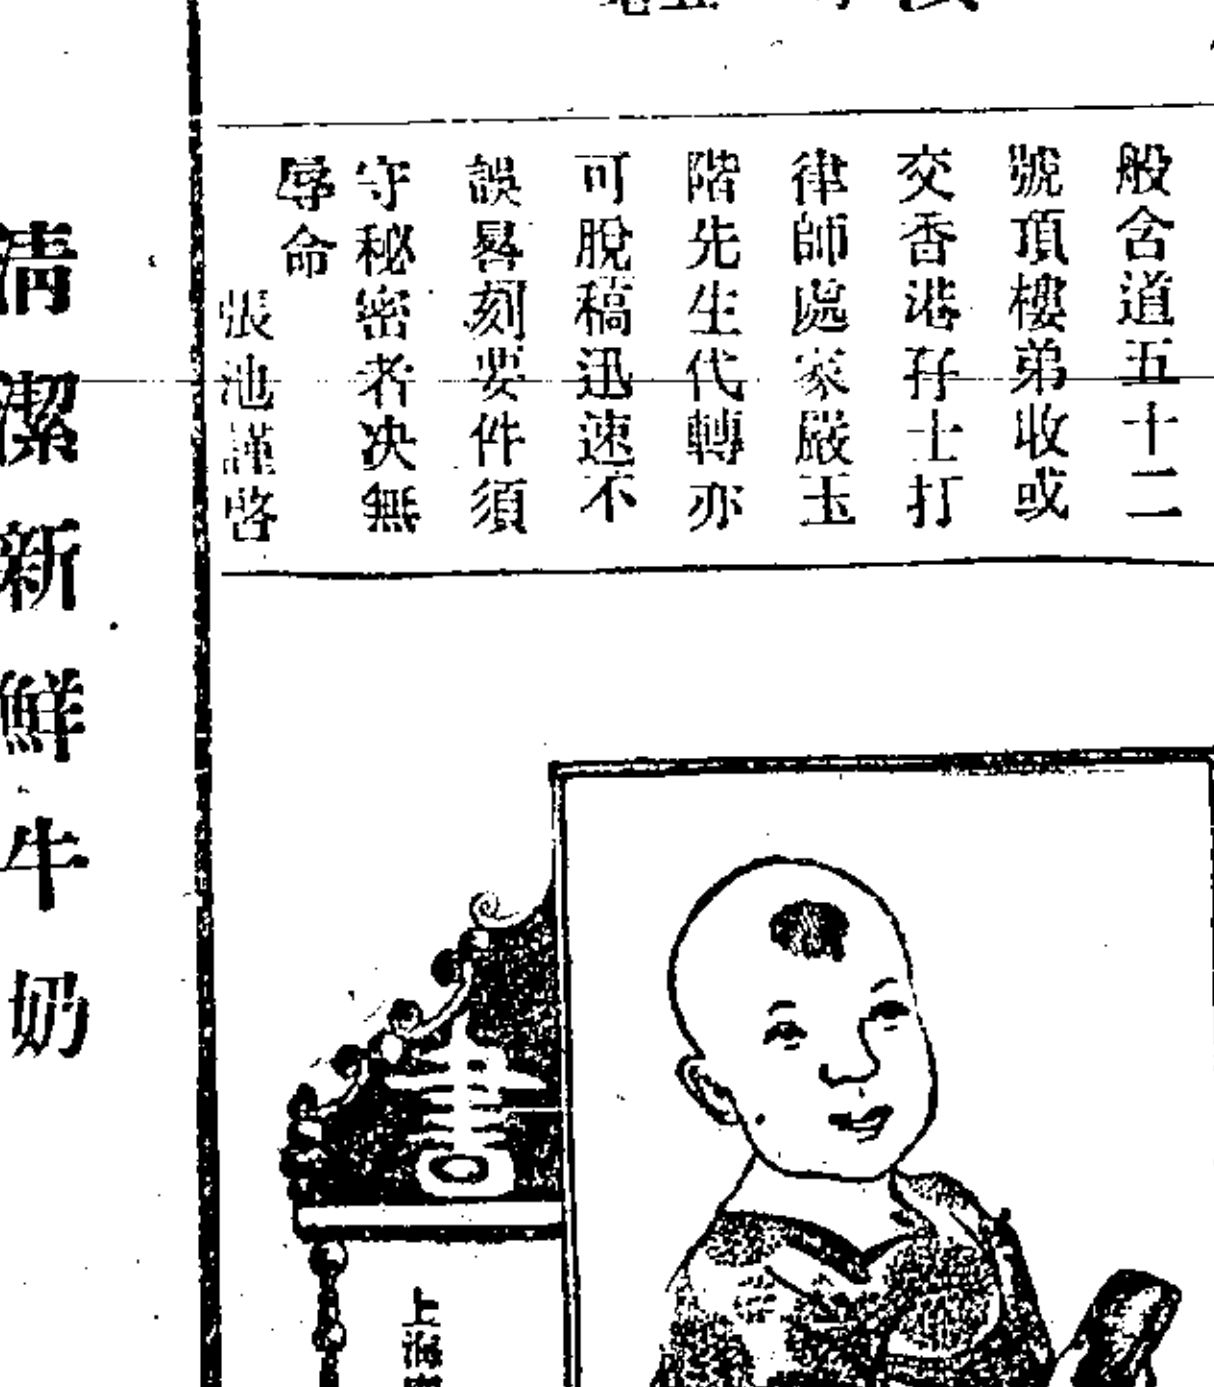 般含道五十二
號頂樓弟收或
交香港孖士打
律師處家嚴玉
階先生代轉亦
可脫稿迅速不
誤晷刻要件須
守秘密者决無
辱命
張池謹啓
清潔新鮮牛奶
上海